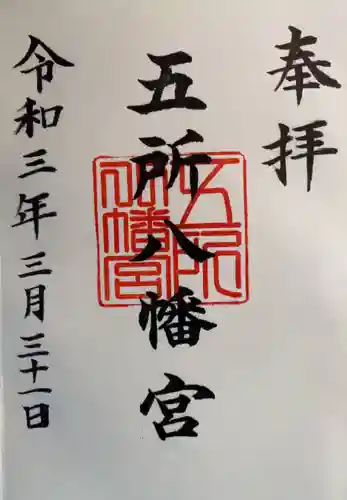 奉拝
五所八幡宮
五所八幡宮
令和三年三月三十一日